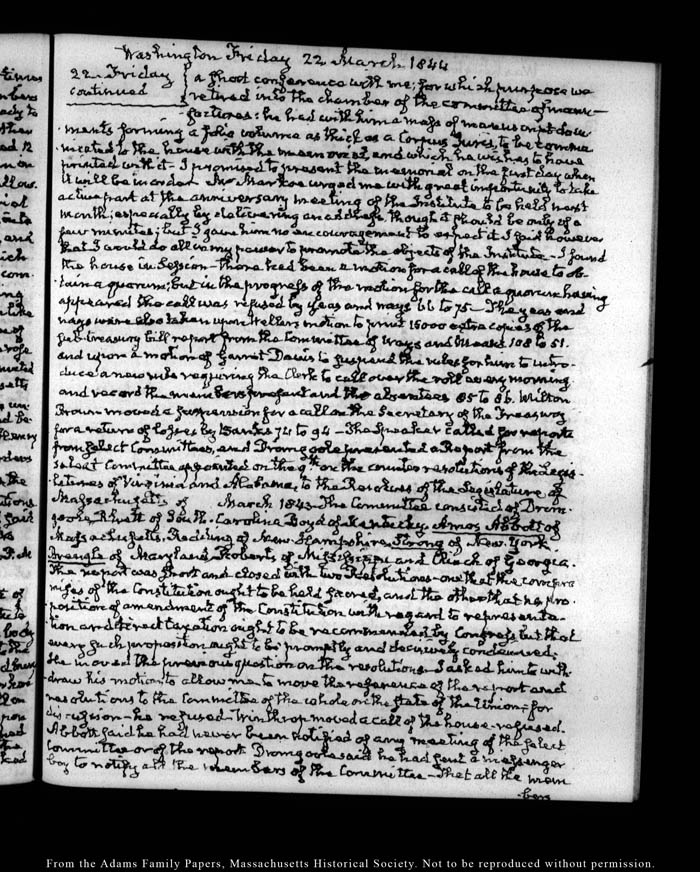 Washington Friday 22 March 1844
22. Friday
continued
a short conference with me; for which purpose we
retired into the chamber of the committee of manu-
factures: he had with him a mass of manuscript docu
ments forming a folio volume as thick as a Corpus Juris, to be commu
nicated to the house with the memorial, and which he wishes to have
printed with it- I promised to present the memorial on the first day when
it will be in order- Mr Markoe urged me with great importunity to take
active part at the anniversary meeting of the Institute to be held next
month; especially by delivering an address though it should be only of a
few minutes; but I gave him no encouragement to expect it I said however
that I would do all in my power to promote the objects of the Institute- I found
the house in Session- There had been a motion for a call of the house to ob-
tain a quorum; but in the progress of the motion for the call a quorum having
appeared the call was refused by yeas and nays 66 to 75- The yeas and
nays were also taken upon Wellers motion to print 15000 extra copies of the
sub-treasury bill report from the Committee of Ways and Means 108 to 51.
and upon a motion of Garret Davis to suspend the rules for him to intro-
duce a new rule requiring the Clerk to call over the roll every morning
and record the members present and the absentees 85 to 86. Milton
Brown moved a suspension for a call on the Secretary of the Treasury
for a return of losses by Banks 74 to 94- The Speaker called for reports
from Select Committees, and Dromgoole presented a Report from the
select Committee appointed on the 9th on the counter resolutions of the Legis-
latures of Virginia and Alabama, to the Resolves of the Legislature of
Massachusetts of March 1843- The Committee consisted of Drom-
goole, Rhett of South-Carolina Boyd of Kentucky Amos Abbott of
Massachusetts, Redding of New Hampshire, Strong of New York
Brengle of Maryland, Roberts of Mississippi and Clinch of Georgia.
The report was short and closed with two Resolutions- one that the compro
mises of the Constitution ought to be held sacred, and the other that no pro-
position of amendment of the Constitution with regard to representa-
tion and direct taxation ought to be recommended by Congress but that
every such proposition ought to be promptly and decisively condemned.
He moved the previous question on the resolutions- I asked him to with-
draw his motion to allow me to move the reference of the report and
resolutions to the Committee of the whole on the state of the Union- for
discussion- he refused- Winthrop moved a call of the house- refused.
Abbott said he had never been notified of any meeting of the select
Committee or of the report Dromgoole said he had sent a messenger
boy to notify all the members of the Committee- that all the mem
bers
From the Adams Family Papers, Massachusetts Historical Society. Not to be reproduced without permission.